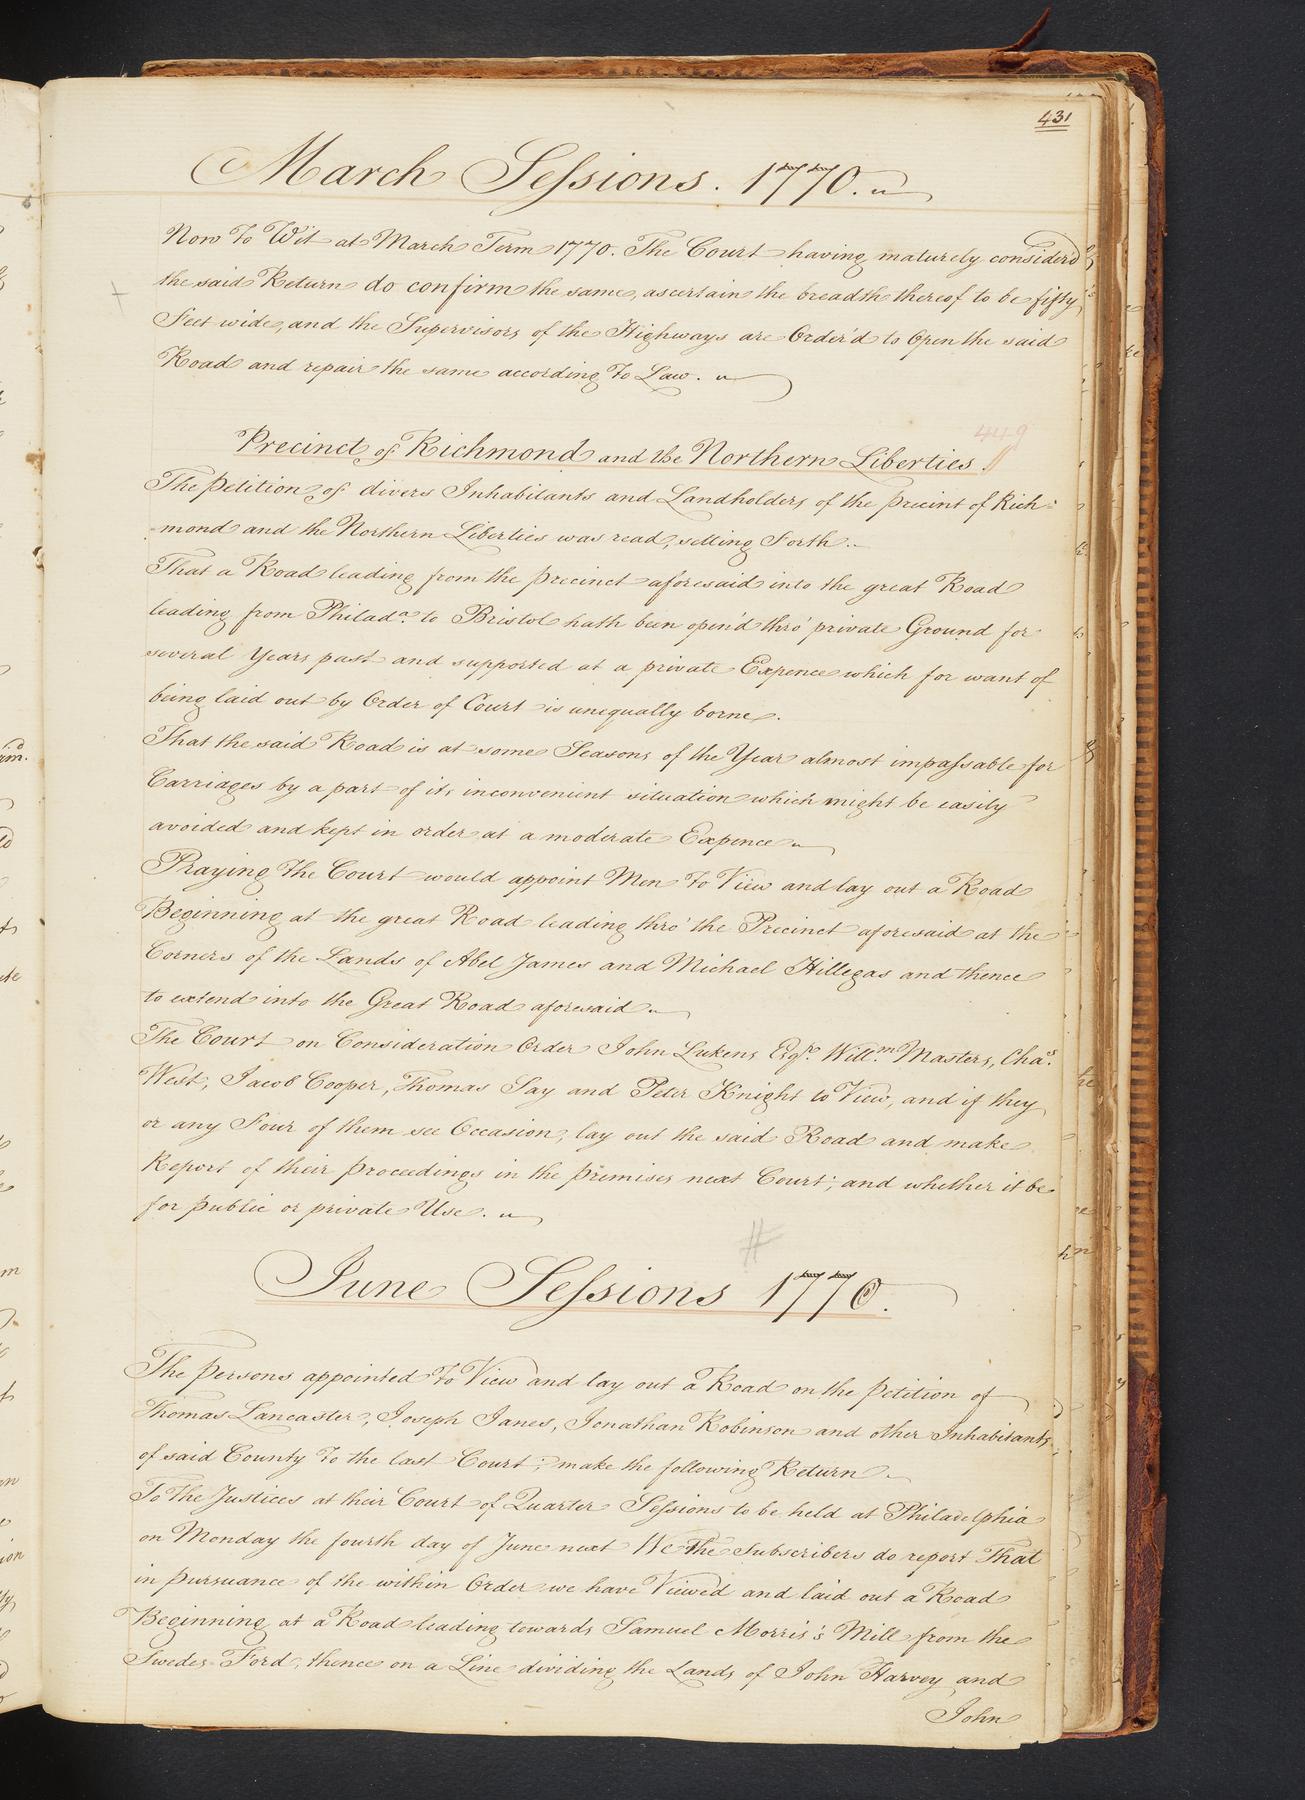 431
March Sessions. 1770.
Now To Wit at March Term 1770. The Court having maturely consider'd
the said Return do confirm the same, ascertain the breadth thereof to be fifty
Feet wide, and the Supervisors of the Highways are Order'd to Open the said
Road and repair the same according To Law.
449
Precinct of Richmond and the Northern Liberties.
The Petition of divers Inhabitants and Landholders of the precint of Rich-
-mond and the Northern Liberties was read, setting Forth.
That a Road leading from the precinct aforesaid into the great Road
leading from Philada. to Bristol hath been open'd thro' private Ground for
several Years past and supported at a private Expence which for want of
being laid out by Order of Court is unequally borne.
That the said Road is at some Seasons of the Year almost impassable for
Carriages by a part of its inconvenient situation which might be easily
avoided and kept in order at a moderate Expence
Praying The Court would appoint Men To View and lay out a Road
Beginning at the great Road leading thro' the Precinct aforesaid at the
Corners of the Lands of Abel James and Michael Hillegas and thence
to extend into the Great Road aforesaid
The Court on Consideration Order John Lukens Esqr. Willm. Masters, Chas.
West, Jacob Cooper, Thomas Say and Peter Knight to View, and if they
or any Four of them see Occasion, lay out the said Road and make
Report of their proceedings in the premises next Court; and whether it be
for public or private Use.
#
June Sessions 1770.
The persons appointed To View and lay out a Road on the petition of
Thomas Lancaster, Joseph Janes, Jonathan Robinson and other Inhabitants
of said County To the last Court; make the following Return
To The Justices at their Court of Quarter Sessions to be held at Philadelphia
on Monday the fourth day of June next We the Subscribers do report That
in pursuance of the within Order we have Viewed and laid out a Road
Beginning at a Road leading towards Samuel Morris's Mill from the
Swedes-Ford, thence on a Line dividing the Lands of John Harvey and
John